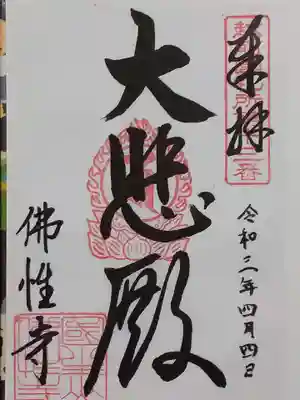 奉拝
令和二年四月四日
大悲殿
佛性寺